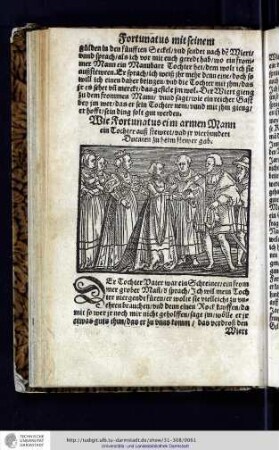 Fortunatus mit seinem
gülden in den künfftigen Seckel / vnd sendet nach dẽ Wierte
vnd sprach / als ich vor mit euch geredt hab / wo ein from-
mer Mann ein Manbare Tochter het / dem wolt ich sie
außsteuren. Er sprach / ich weiß jhr mehr denn eine / doch so
will ich einen daher bringen / vnd die Tochter mit jhm / das
jr es sehet vñ merckt / das gefiele jm wol. Der Wiert gieng
zu dem frommen Mann / vnd sagt / wie ein reicher Gast
bey jm wer / das er sein Tochter nem / vnnd mit jhm gienge
er hoffte / sein ding solt gut werden.
Wie Fortunatus eim armen Mann
ein Tochter auß stewret / vnd jr vierhundert
Ducaten zu heim stewer gab.
DEr Tochter Vater war ein Schreiner / ein from
mer grober Mañ / d̃ sprach / Ich will mein Toch
ter niergends füren / er wolte sie vielleicht zu vn-
ehren brauchen / vnd denn einen Rock kauffen / da
mit so wer jr noch mir nicht geholffen / sage jm / wölle er jr
etwas guts thun / das er zu vnns komm / das verdroß den
Wiert
http://tudigit.ulb.tu-darmstadt.de/show/31-308/0061
Universitäts- und Landesbibliothek Darmstadt